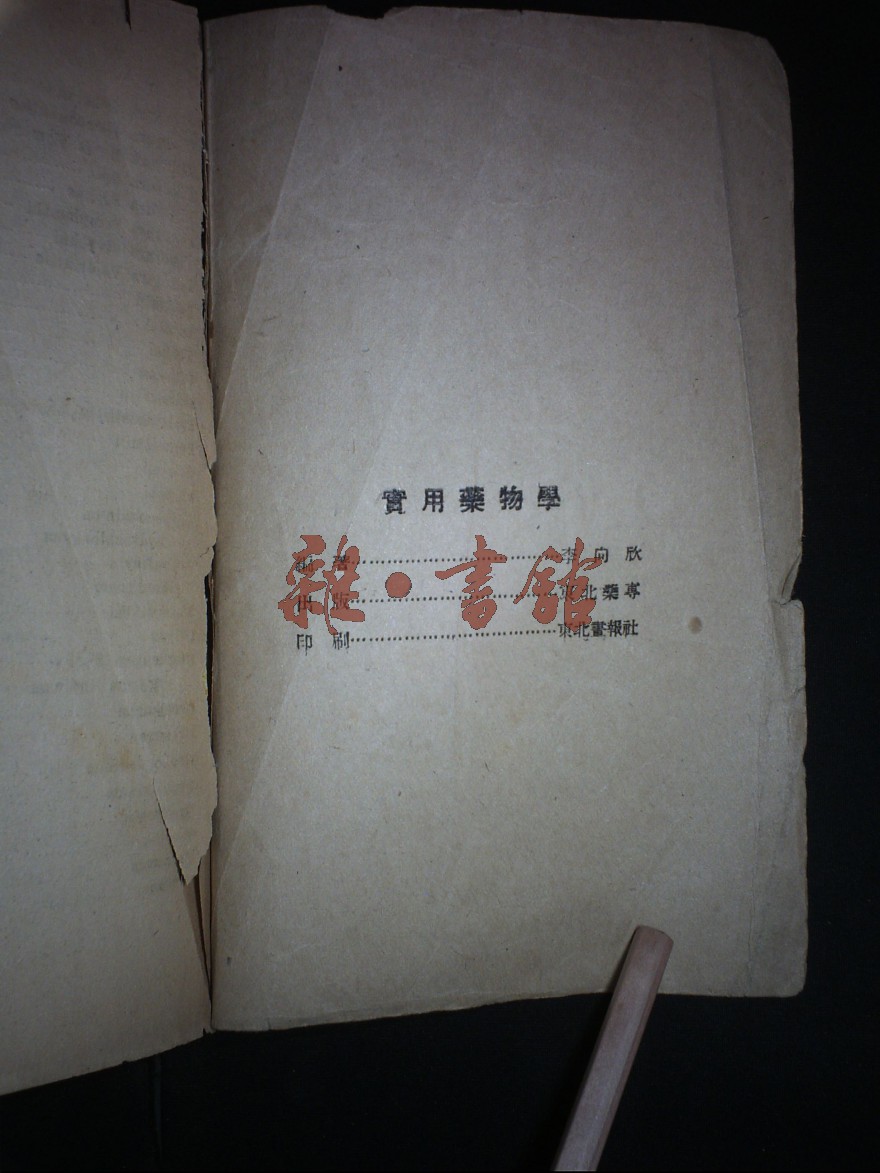 實用藥物學
編著……………………………李向欣
出版……………………………東北藥專
印刷……………………………東北畫報社
雜·書館